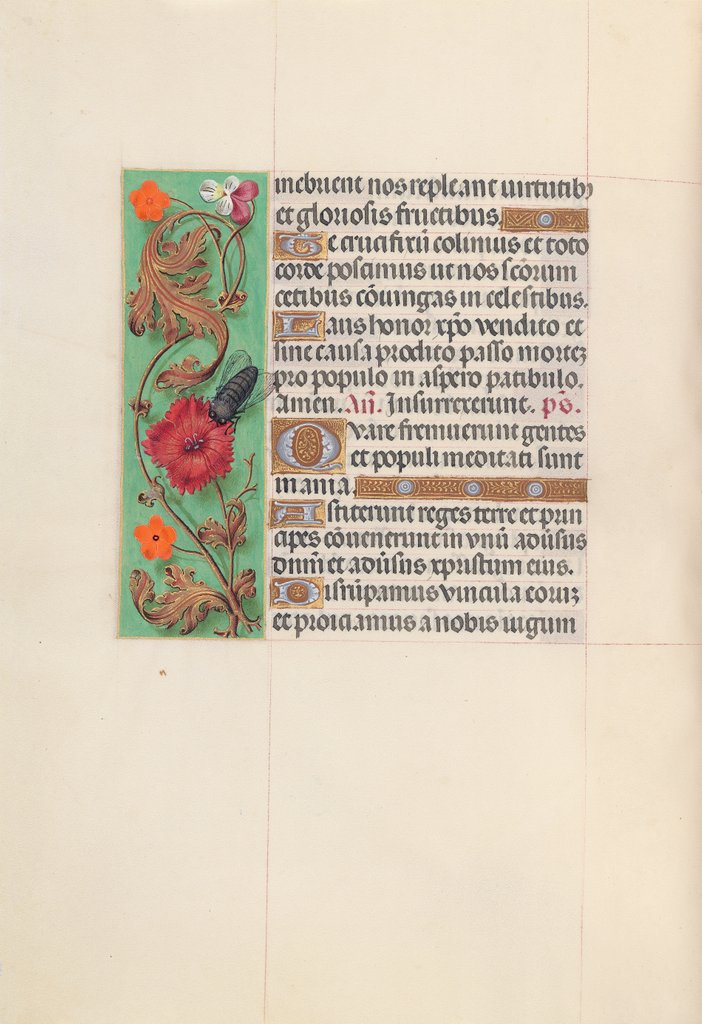 inebrient nos repleant virtutib⁹
et gloriosis fructibus.
Te crucifixū colimus et toto
corde poscimus ut nos scōrum
cetibus cōiungas in celestibus.
Laus honor xp̄o vendito et
sine causa prodito passo mortez
pro populo in aspero patibulo.
Amen. Añ. Insurrexerunt. ps̄.
Quare fremuerunt gentes
et populi meditati sunt
inania.
Astiterunt reges terre et prin
cipes cōuenerunt in vnū adūsus
dn̄m et adūsus xpristum eius.
Disrūpamus vincula eoruz
et proiciamus a nobis iugum